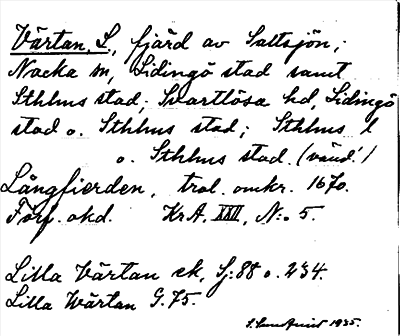 Värtan, L., fjärd av Saltsjön;
Nacka sn, Lidingö stad samt
Sthlms stad; Svartlösa hd, Lidingö
stad o. Sthlms stad; Sthlms l
o. Sthlms stad. (vänd!)
Långfierden, trol. omkr. 1670.
Förf. okd. KrA. XXII, N:o 5.
Lilla Värtan sk, Sj: 88 o. 234.
Lilla Wärtan G. 75.
1935.